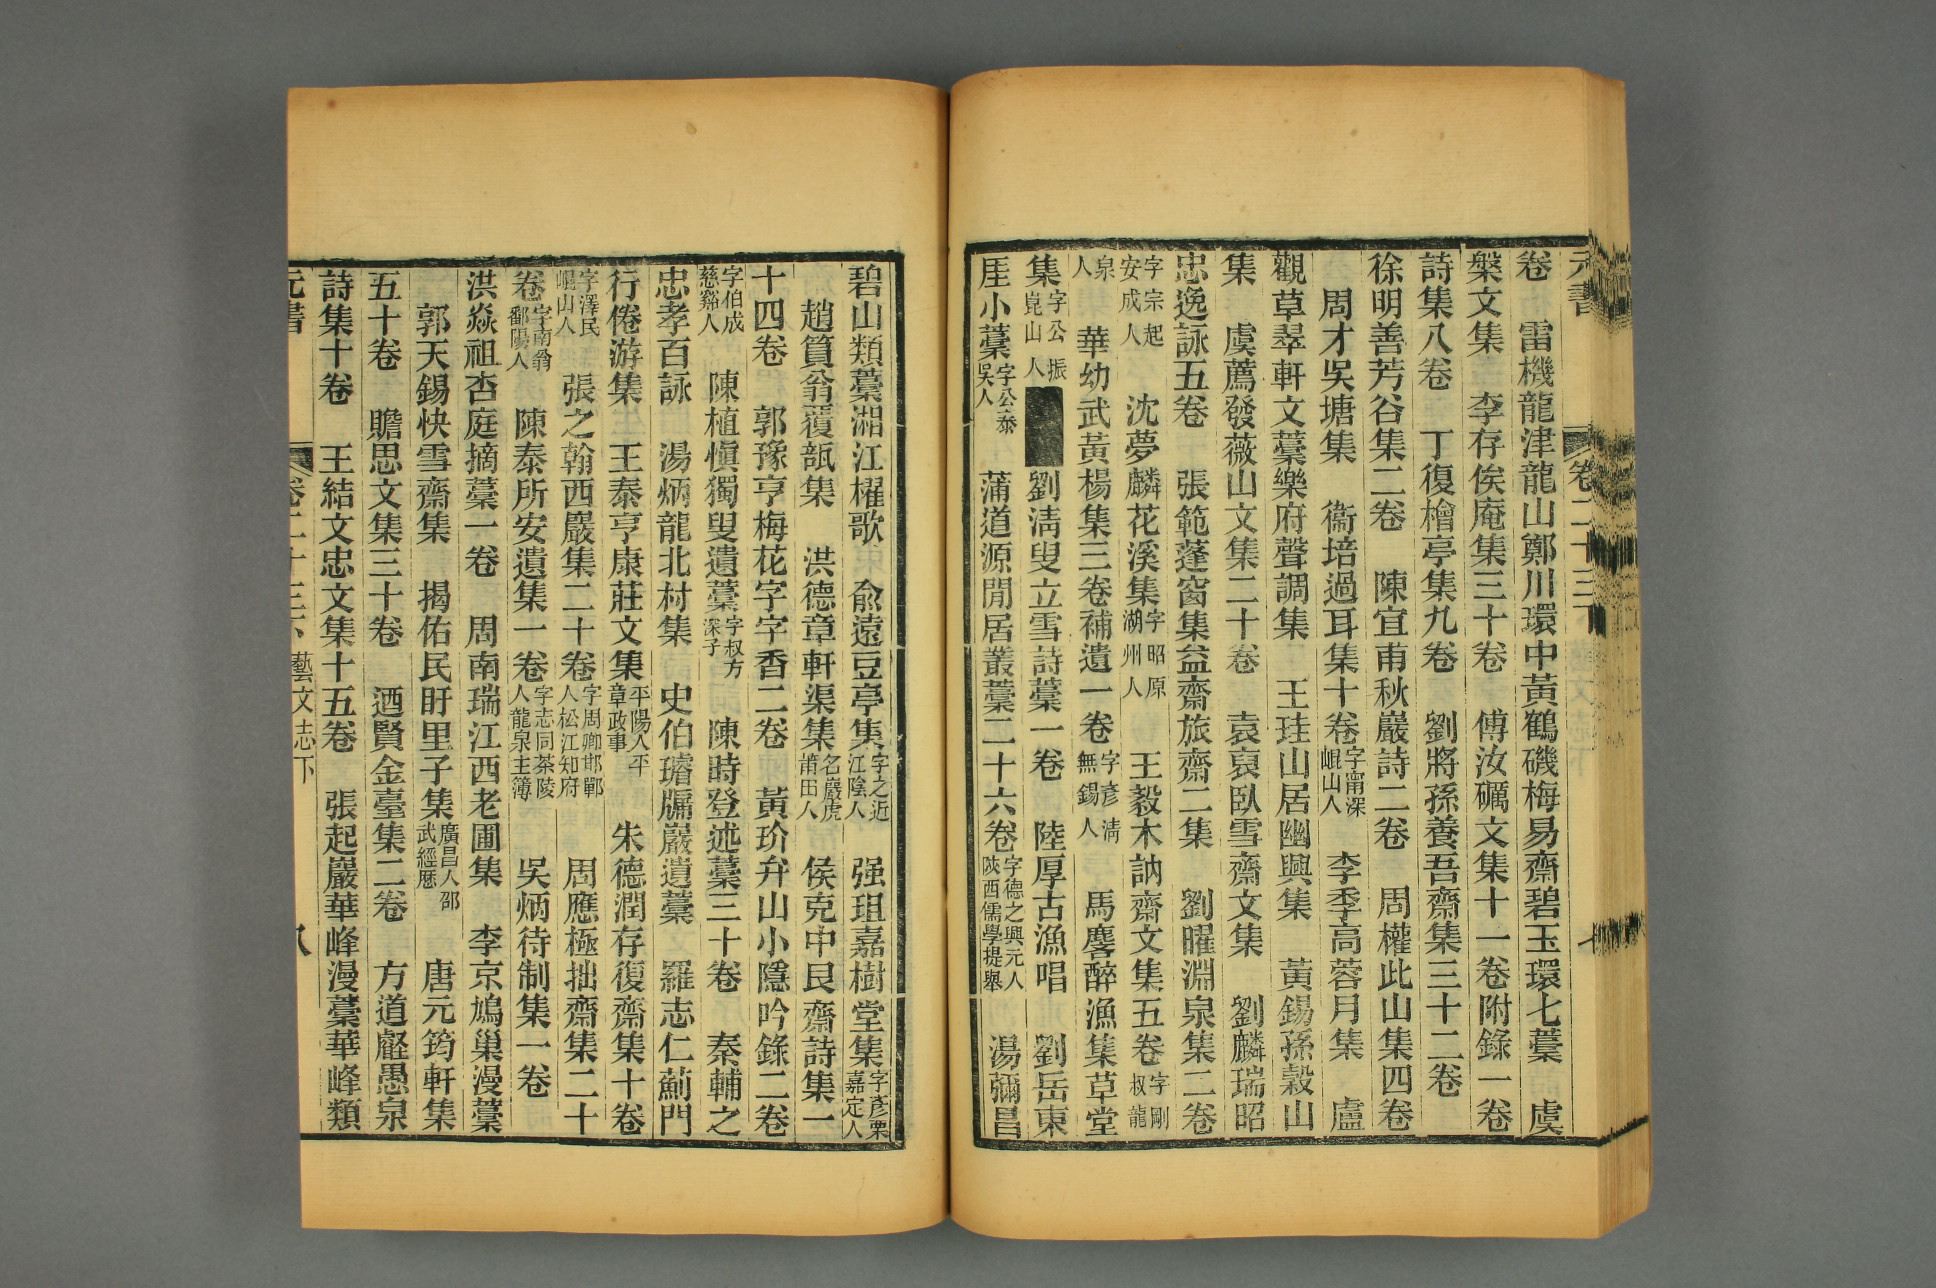 元書 卷二十三下 七
卷 雷機龍津龍山鄭川環中黃鶴磯梅易齋碧玉環七藁 虞
槃文集 李存俟庵集三十卷 傅汝礪文集十一卷附錄一卷
詩集八卷 丁復檜亭集九卷 劉將孫養吾齋集三十二卷
徐明善芳谷集二卷 陳宜甫秋巖詩二卷 周權此山集四卷
周才吳塘集 衞培過耳集十卷字甯深崐山人 李季高蓉月集 盧
觀草翠軒文藁樂府聲調集 王珪山居幽興集 黃錫孫穀山
集 虞薦發薇山文集二十卷 袁裒臥雪齋文集 劉麟瑞昭
忠逸詠五卷 張範蓬窗集益齋旅齋二集 劉曜淵泉集二卷
字宗起安成人 沈夢麟花溪集字昭原湖州人 王毅木訥齋文集五卷字剛叔龍
泉人 華幼武黃楊集三卷補遺一卷字彥淸無錫人 馬麐醉漁集草堂
集字公振崑山人 劉淸叟立雪詩藁一卷 陸厚古漁唱 劉岳東
厓小藁字公泰吳人 蒲道源閒居叢藁二十六卷字德之興元人陜西儒學提舉 湯彌昌
碧山類藁湘江櫂歌 俞遠豆亭集字之近江陰人 强珇嘉樹堂集字彥栗嘉定人
趙篔翁覆瓿集 洪德章軒渠集名巖虎莆田人 侯克中艮齋詩集一
十四卷 郭豫亨梅花字字香二卷 黃玠弁山小隱吟錄二卷
字伯成慈谿人 陳植愼獨叟遺藁字叔方深子 陳時登述藁三十卷 秦輔之
忠孝百詠 湯炳龍北村集 史伯璿牖巖遺藁 羅志仁薊門
行倦游集 王泰亨康莊文集平陽人平章政事 朱德潤存復齋集十卷
字澤民崐山人 張之翰西巖集二十卷字周卿邯鄲人松江知府 周應極拙齋集二十
卷字南翁鄱陽人 陳泰所安遺集一卷字志同茶陵人龍泉主簿 吳炳待制集一卷
洪焱祖杏庭摘藁一卷 周南瑞江西老圃集 李京鳩巢漫藁
郭天錫快雪齋集 揭佑民盱里子集廣昌人邵武經歷 唐元筠軒集
五十卷 贍思文集三十卷 迺賢金臺集二卷 方道壡愚泉
詩集十卷 王結文忠文集十五卷 張起巖華峰漫藁華峰類
元書 卷二十三下 藝文志下 八